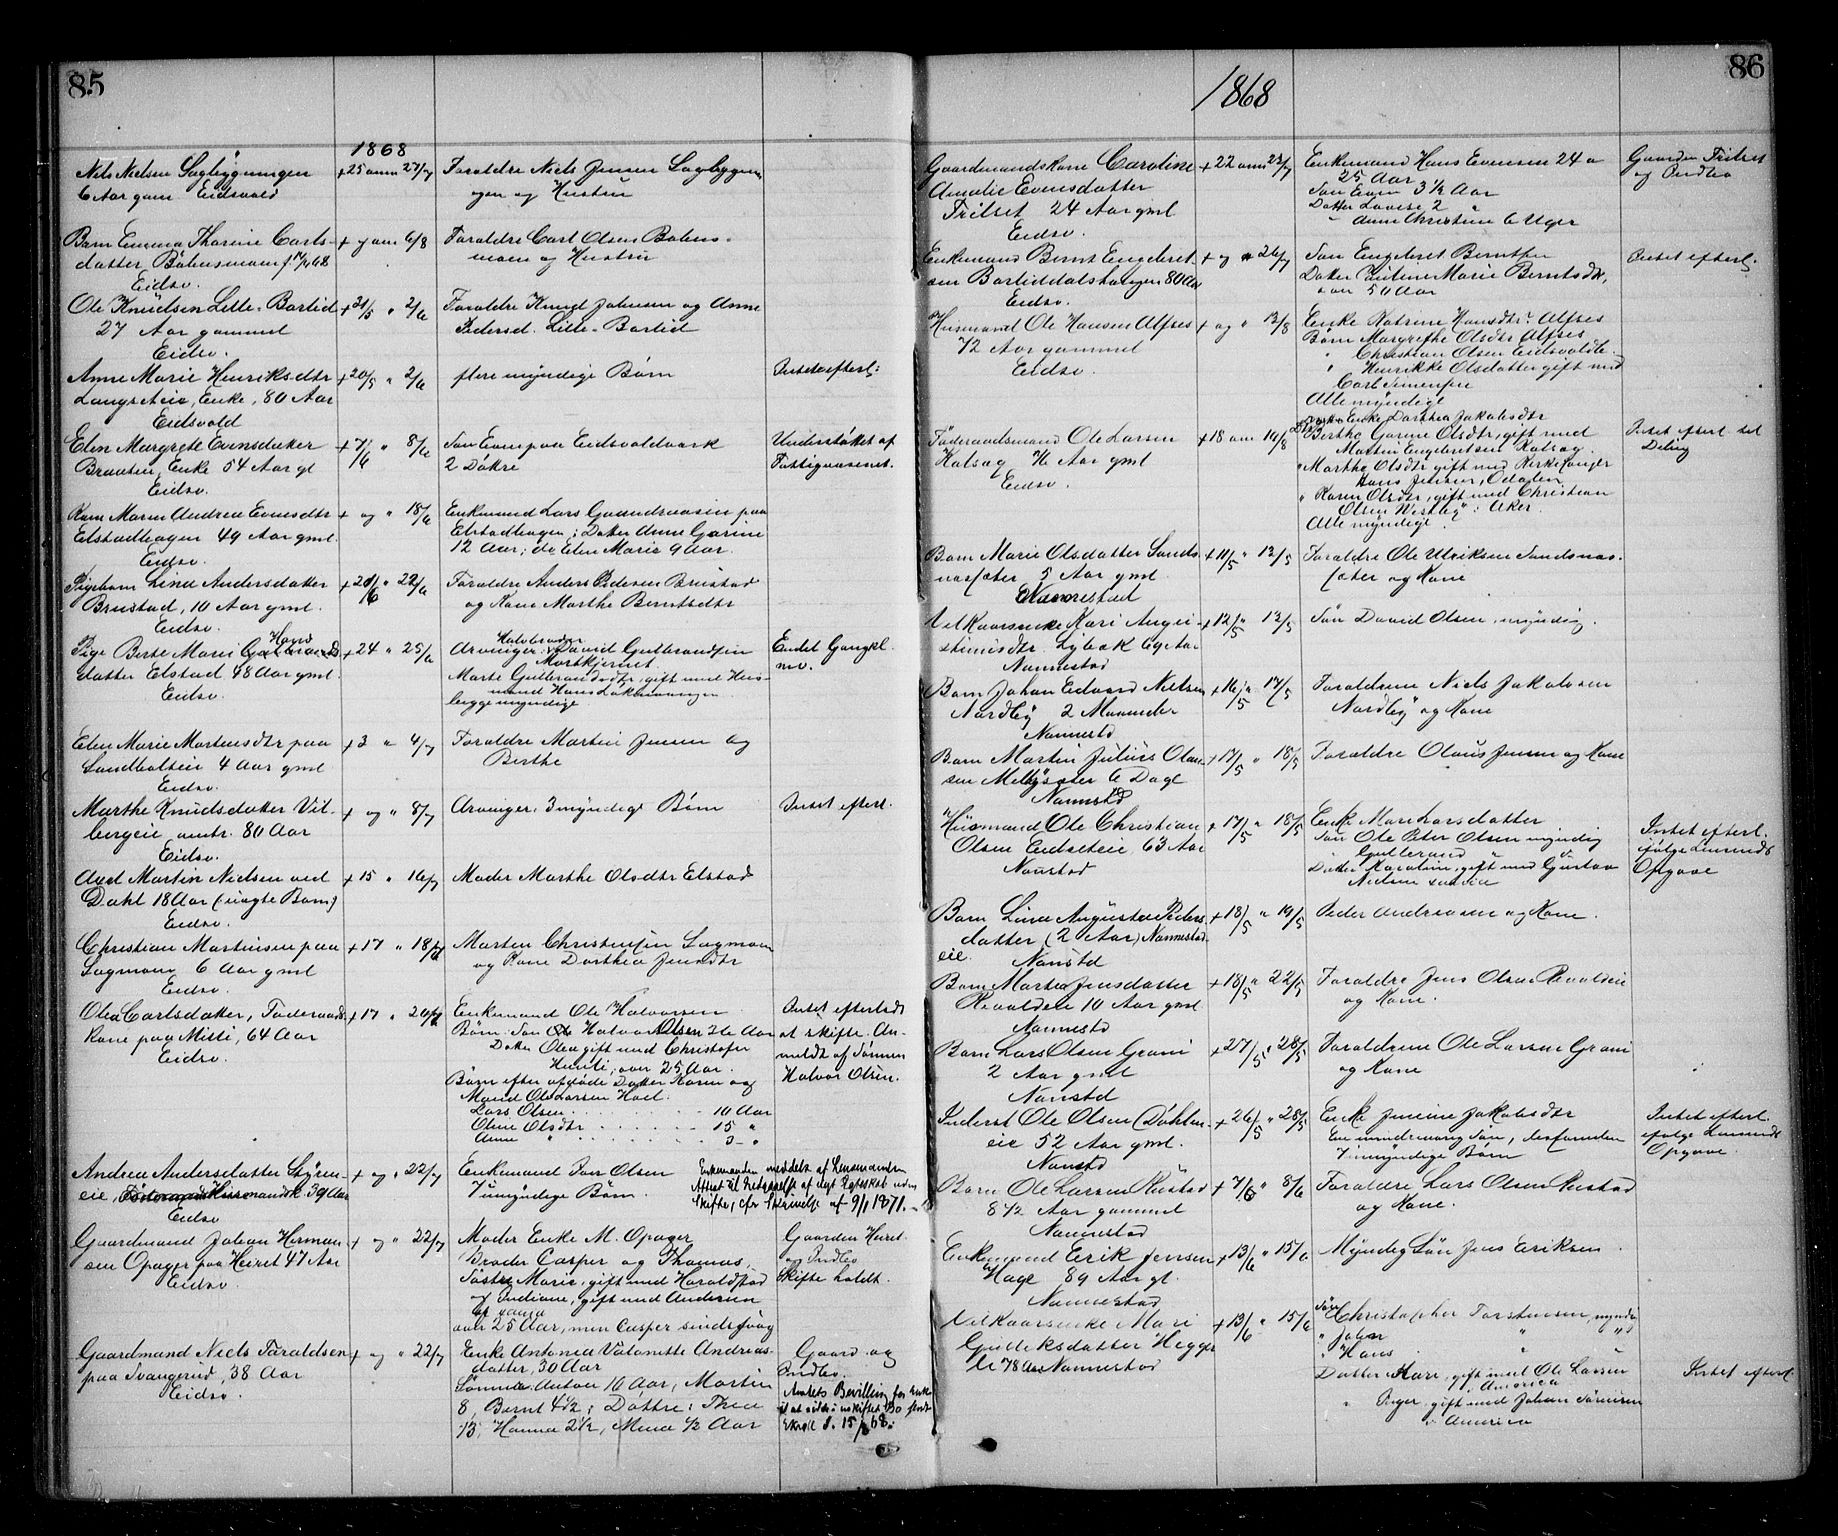 85
1868
Nils Nielsen Sagbygningen +25 anm 27/7 Foraldre Niels Jensen Sagbygnin
6 Aar gam Eidsvold gen og Hustru
Barn Emma Thorine Carls- + og anm 6/8 Foraldre Carl Olsen Bøhns-
datter Bøhnsmoen f. 68 moen og Hustru
Eidsv.
Ole Knudsen Lille-Bartid +31/5 " 2/6 Foraldre Knud Johnsen og Anne
27 Aar gammel Pedersd. Lille-Bartid
Eidsv.
Anne Marie Henriksdtr +20/5 " 2/6 flere myndige Børn Intet efterl:
Langseteie, Enke, 80 Aar
Eidsvold
Elen Margrete Evensdatter +7/6 " 8/6 Søn Even paa Eidsvoldværk Understøttet af
Braaten, Enke 54 Aar gl 2 Døttre Fattigvæsenet.
Eidsv.
Kone Maren Andrea Evensdtr + og " 18/6 Enkemand Lars Gundersen paa
Elstadhagen 49 Aar gml. Elstadhagen; Datter Anne Gorine
Eidsv. 12 Aar; do Elen Marie 9 Aar.
Pigebarn Lina Andersdatter +21/6 " 22/6 Foraldre Anders Pedersen Brustad
Brustad, 10 Aar gml. og Kone Marthe Berntsdtr
Eidsv.
Pige Berte Marie Hans +24 " 25/6 Arvinger: Halvbroder David Gulbrandsen Endel Gangkl.
datter Elstad 48 Aar gml. Mortkjernet. m.v.
Eidsv. Marte Gulbrandsdtr, gift med Hus-
mand Hans
begge myndige.
Elen Marie Mortensdtr paa +3 " 4/7 Foraldre Martin Jensen og
Sandholteie 4 Aar gml Berthe
Eidsv.
Marthe Knudsdatter Vil- + og " 8/7 Arvinger: 3 myndige Børn Intet efterl.
bergeie omtr. 80 Aar
Eidsv.
Axel Martin Nielsen ved +15 " 16/7 Moder Marthe Olsdtr Elstad
Dahl 18 Aar (uægte Barn)
Eidsv.
Christian Martinsen paa +17 " 18/7 Morten Christensen Sagmoen
Sagmoen 6 Aar gml og Kone Dorthea Jensdtr
Eidsv.
Olea Carlsdatter, Føderaads +17 " 20/7 Enkemand Ole Halvorsen Intet efterladt
kone paa Mistli, 64 Aar Børn: Søn Halvor Olsen 26 Aar at skifte. An-
Eidsv. Datter Olea gift med Christofer meldt af Sønnen
Hunli, over 25 Aar. Halvor Olsen.
Børn efter afdøde Datter Karen og
Mand Ole Larsen Hoel.
Lars Olsen 10 Aar
Oline Olsdtr 15 "
Anne " 3 "
Andrea Andersdatter Styren- + og " 22/7 Enkemand Jens Olsen Enkemanden meddelt af Lensmanden
eie, Husmandsk 39 Aar 7 umyndige Børn. Attest til Indgaaelse af nyt Ægteskab uden
Eidsv Skifte, cfr Skrivelse af 9/1 1871.
Gaardmand Johan Herman- + og " 22/7 Moder Enke M. Opager Gaarden Heiret
sen Opager paa Heiret 47 Aar Brodre Casper og Thomas, og Indbo
Eidsv. Søstre Marie, gift med Haraldstad Skifte holdt.
og Indiane, gift med Andersen
over 25 Aar, men Casper sindssvag
Gaardmand Niels Taraldsen + og " 22/7 Enke Antonia Valonette Andreas- Gaard og
paa Svangerud, 38 Aar datter, 30 Aar Indbo.
Eidsv. Sønner: Anton 10 Aar, Martin Amtets Bevilling for Enken
8, Bernt 4½; Døttre: Thea til at sidde i uskiftet Bo
, Hanna 2½, Mina ½ Aar d. 15/8 68.
86
1868
Gaardmandskone Caroline +22 anm 23/7 Enkemand Hans Evensen 24 a Gaarden Frilset
Amalie Evensdatter 25 Aar og Indbo
Frilset 24 Aar gml Søn Even 3½ Aar
Eidsv. Datter Lovise 2 "
" Anne Christine 6 Uger
Enkemand Bernt Engebret- + og " 26/7 Søn Engebret Berntsen Intet efterl:
sen Bartiddalshagen 80 Aar Datter Pauline Marie Berntsdtr,
Eidsv. over 50 Aar
Husmand Ole Hansen Alfses + og " 13/8 Enke Katrine Hansdtr Alfses
72 Aar gammel Børn Margrethe Olsdtr Alfses
Eidsv. " Christian Olsen
" Henrikke Olsdatter gift med
Carl Simensen
Alle myndige
Føderaadsmand Ole Larsen +18 anm 19/8 Enke Dorthea Jakobsdtr Intet efterl til
Kolsag Aar gml Berthe Gorine Olsdtr, gift med Deling
Eidsv. Morten Engebretsen Kolsag.
" Marthe Olsdtr gift med Kirkesanger
Hans Jensen, Odalen
" Karen Olsdtr, gift med Christian
Olsen Westby i Aker.
Alle myndige.
Barn Marie Olsdatter Sands +11/5 " 12/5 Foraldre Ole Ulriksen Sandsnæs-
næsæter 5 Aar gml sæter og Kone
Nannestad
Vilkaarsenke Kari Angri- +12/5 " 13/5 Søn David Olsen, myndig.
stinisdtr. Lybæk 69 Aar
Nannestad
Barn Johan Edvard Nielsen +16/5 " 17/5 Foraldrene Niels Jakobsen
Nordby 2 Maaneder Nordby og Kone
Nannestd
Barn Martin Julius Olau- +17/5 " 18/5 Foraldre Olaus Jensen og Kone
sen Melbysæter 6 Dage
Nannestd
Husmand Ole Christian +17/5 " 18/5 Enke Mari Larsdatter Intet efterl.
Olsen Eidseteie, 63 Aar Søn Ole Peter Olsen myndig ifølge Lensmds
Nanstad Gulbrand " " Opgave
Datter Karoline, gift med Gustav
Nielsen
Barn Lina Augusta Peders +18/5 " 19/5 Peder Andreasen og Kone.
datter (2 Aar) Nannestad
eie. Nanstd
Barn Marthe Jensdatter +18/5 " 22/5 Foraldre Jens Olsen
10 Aar gml og Kone.
Nannestd
Barn Lars Olsen Grani +27/5 " 28/5 Foraldrene Ole Larsen Grani
2 Aar gml og Kone
Nanstd
Inderst Ole Olsen Døhlen- +26/5 " 28/5 Enke Jensine Jakobsdtr Intet efterl.
eie 52 Aar gml. En mindreaarig Søn, desforuden ifølge Lensmds
Nanstd 7 myndige Børn Opgave.
Barn Ole Larsen Rustad +7/6 " 8/6 Foraldre Lars Olsen Rustad
8½ Aar gammel og Kone.
Nannestad
Enkemand Erik Jensen +13/6 " 15/6 Myndig Søn Jens Eriksen
Hage 89 Aar gl.
Nannestad
Vilkaarsenke Mari +13/6 " 15/6 Søn Christopher Torstensen, myndig
Gudeksdatter Hegge- " John " "
li 78 Aar Nannestad " Hans "
Datter Kari, gift med Ole Larsen Intet efterl.
i America
" Inger, gift med Johan Sørensen
i America